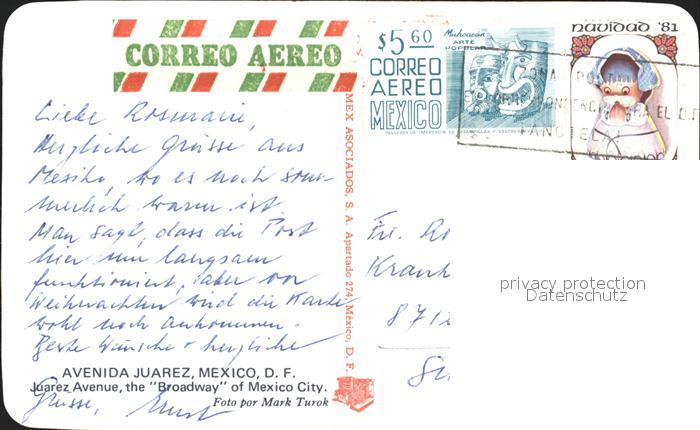 CORREO AEREO
$5 60
Michoacán
ARTE
POPULAR
CORREO
AEREO
MEXICO
navidad '81
Liebe Rosmarie,
Herzliche Grüsse aus
Mexiko, wo es noch som-
merlich warm ist.
Man sagt, dass die Post
hier nur langsam
funktioniert, aber vor
Weihnachten wird die Karte
wohl noch ankommen.
Beste Wünsche + herzliche
Grüsse, Ernst
AVENIDA JUAREZ, MEXICO, D. F.
Juarez Avenue, the "Broadway" of Mexico City.
Foto por Mark Turok
MEX ASOCIADOS, S A Apartado 274, México, D. F.
Frl. Ro
Krank
871
privacy protection
Datenschutz